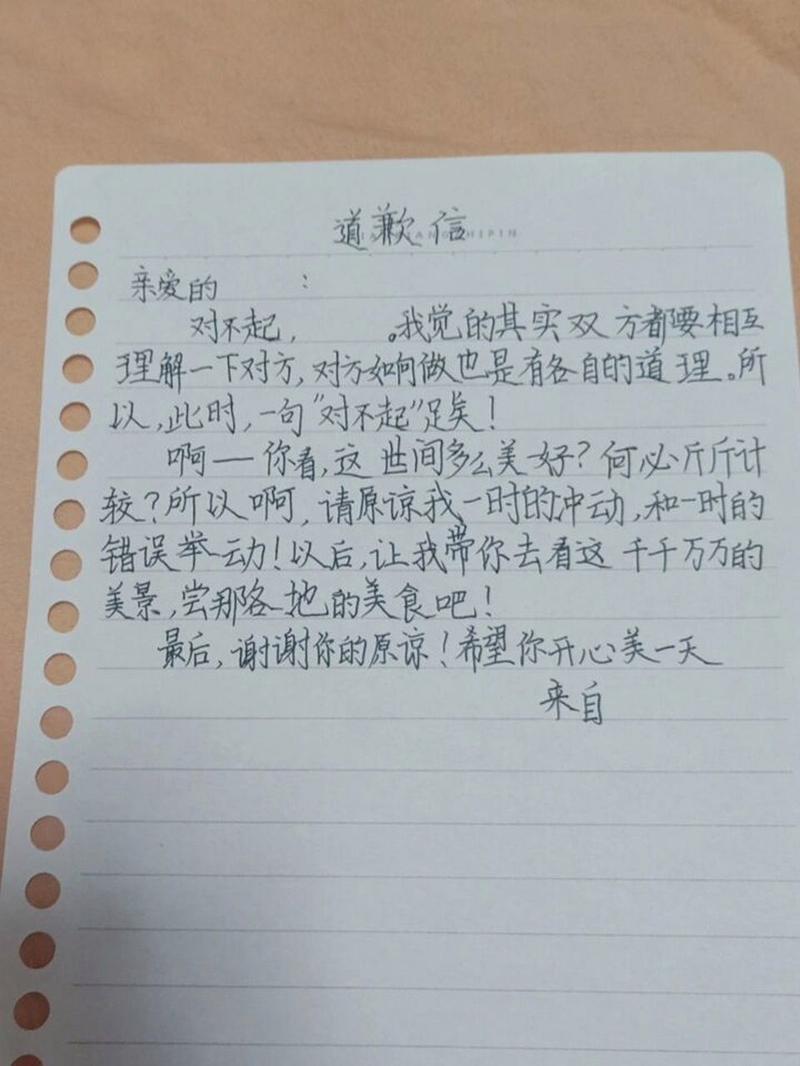 道歉信
亲爱的 :
对不起, 。我觉的其实双方都要相互
理解一下对方,对方如何做也是有各自的道理。所
以,此时,一句“对不起”足矣!
啊——你看,这世间多么美好?何必斤斤计
较?所以啊,请原谅我一时的冲动,和一时的
错误举动!以后,让我带你去看这千千万万的
美景,尝那各地的美食吧!
最后,谢谢你的原谅!希望你开心美一天
来自